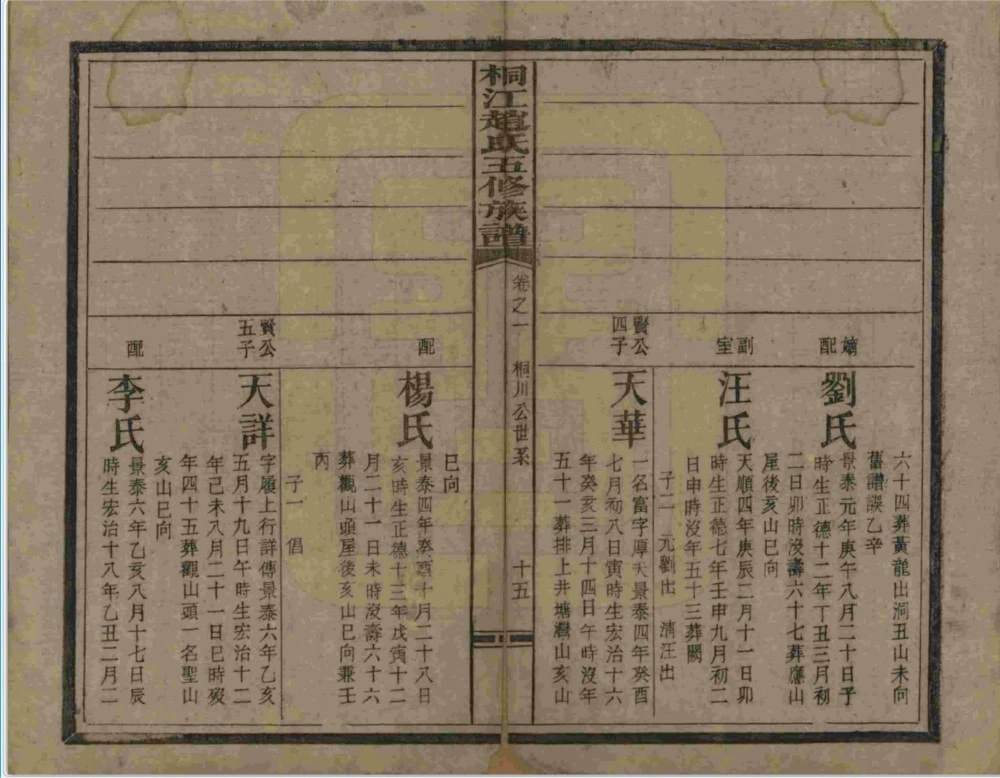 六十四葬黃龍出洞丑山未向
舊譜誤乙辛
嫡配
劉氏
景泰元年庚午八月二十日子
時生正德十二年丁丑三月初
二日卯時沒壽六十七葬應山
屋後亥山巳向
副室
汪氏
天順四年庚辰二月十一日卯
時生正德七年壬申九月初二
日申時沒年五十三葬闕
子二 元劉出 清汪出
賢公四子
天華
一名富字厚夫景泰四年癸酉
七月初八日寅時生宏治十六
年癸亥三月十四日午時沒年
五十一葬排上井塘灣山亥山
桐江趙氏五修族譜
卷之一 桐川公世系 十五
巳向
配
楊氏
景泰四年癸酉十月二十八日
亥時生正德十三年戊寅十二
月二十一日未時沒壽六十六
葬觀山頭屋後亥山巳向兼壬
丙
子一 倡
賢公五子
天詳
字履上行詳傳景泰六年乙亥
五月十九日午時生宏治十二
年己未八月二十一日巳時歿
年四十五葬觀山頭一名聖山
亥山巳向
配
李氏
景泰六年乙亥八月十七日辰
時生宏治十八年乙丑二月二